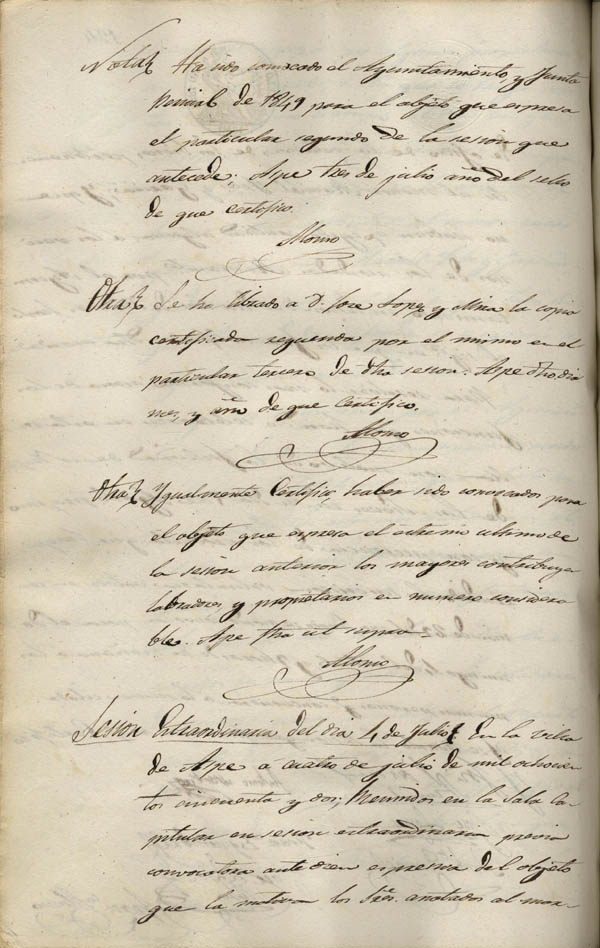 Nota. Ha sido convocado el Ayuntamiento, y Junta
pericial de 1849 para el objeto que espresa
el particular segundo de la sesion que
antecede; Aspe tres de julio año del sello
de que certifico.
Alonso
Otra. Se ha librado a D. Jose Lopez y Mira la copia
certificada requerida por el mismo en el
particular tercero de dha sesion. Aspe dho dia
mes, y año de que Certifico.
Alonso
Otra. Ygualmente Certifico, haber sido convocados para
el objeto que espresa el estremo ultimo de
la sesion anterior los mayores contribuyen
labradores, y propietarios en numero considera
ble. Aspe fha ut supra.
Alonso
Sesion Extraordinaria del dia 4 de Julio. En la villa
de Aspe a cuatro de julio de mil ochocien
tos cincuenta y dos; Reunidos en la Sala Ca-
pitular en sesion extraordinaria previa
convocatoria ante diem espresiva del objeto
que la motiva los Sres. anotados al mar-